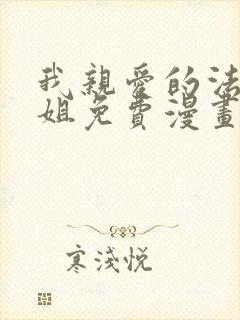 我親愛的法
姐免費漫畫
寒淺悅